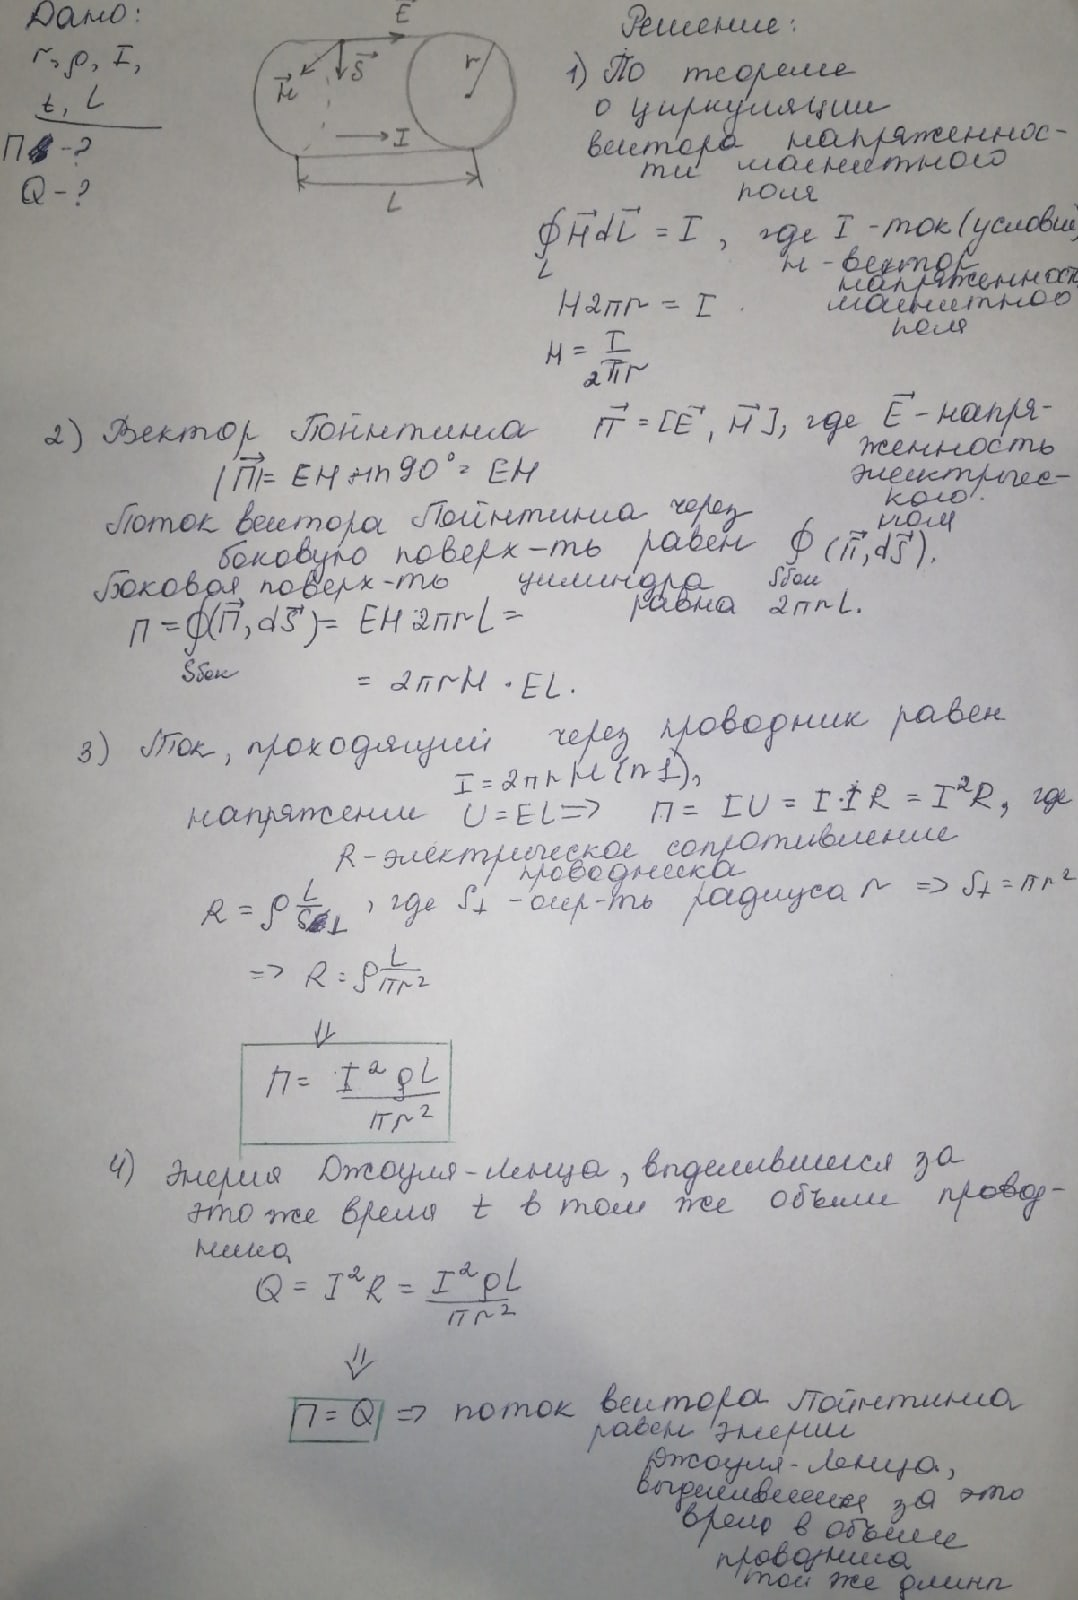 Дано:
r, ρ, I,
t, L
П -?
Q -?
E
H
S
r
I
L
Решение:
1) По теореме
о циркуляции
вектора напряженнос-
ти магнитного
поля
∮H⃗dL⃗ = I, где I - ток (условие)
L
H - вектор
напряженность
магнитного
поля
H2πr = I
H = I/2πr
2) Вектор Пойнтинга П⃗ = [E⃗, H⃗], где E⃗ - напря-
женность
электричес-
кого
поля
|П⃗| = EH sin90° = EH
Поток вектора Пойнтинга через
боковую поверх-ть равен ∮(П⃗, dS⃗).
Sбок
Боковая поверх-ть цилиндра
равна 2πrL.
П = ∮(П⃗, dS⃗) = EH·2πrL =
Sбок
= 2πrH · EL.
3) Ток, проходящий через проводник равен
I = 2πrH (п 1),
напряжение U = EL => П = IU = I·IR = I²R, где
R - электрическое сопротивление
проводника
R = ρ L/S⊥, где S⊥ - окр-ть радиуса r => S⊥ = πr²
=> R = ρ L/πr²
⇓
П = I²ρL/πr²
4) Энергия Джоуля-Ленца, выделившаяся за
это же время t в том же объеме провод-
ника
Q = I²R = I²ρL/πr²
⇓
П = Q => поток вектора Пойнтинга
равен энергии
Джоуля-Ленца,
выделившейся за это
время в объеме
проводника
той же длины